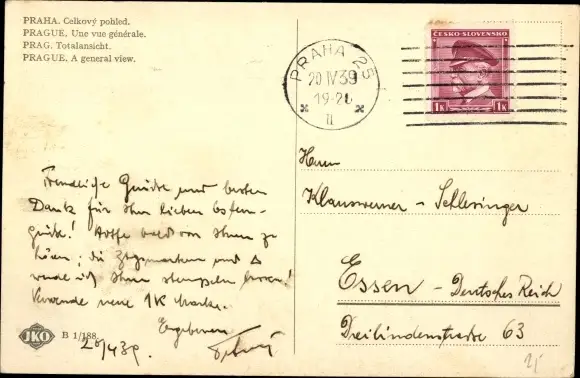 PRAHA. Celkový pohled.
PRAGUE. Une vue générale.
PRAG. Totalansicht.
PRAGUE. A general view.
PRAHA 25
20 IV 39
19-2
ČESKO-SLOVENSKO
1K 1K
Herrn
Klauswerner - Schlesinger
Essen - Deutsches Reich
Dreilindenstrasse 63
Freundliche Grüsse und besten
Dank für Ihre lieben Oster-
grüsse! Hoffe bald von Ihnen zu
hören; die und Δ
werde ich Ihnen stempeln lassen!
Verwende neue 1K Marke.
Ergebenen
JKO
B 1/188
20/4 39.